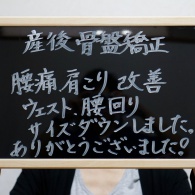 産後骨盤矯正
腰痛、肩こり 改善
ウェスト、腰回り
サイズダウンしました。
ありがとうございました!